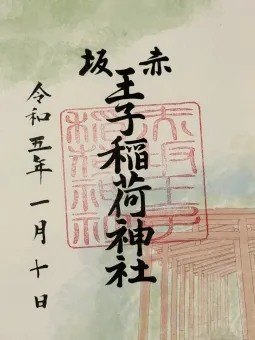 赤坂
王子稲荷神社
令和五年一月十日
赤坂王子
稲荷神社